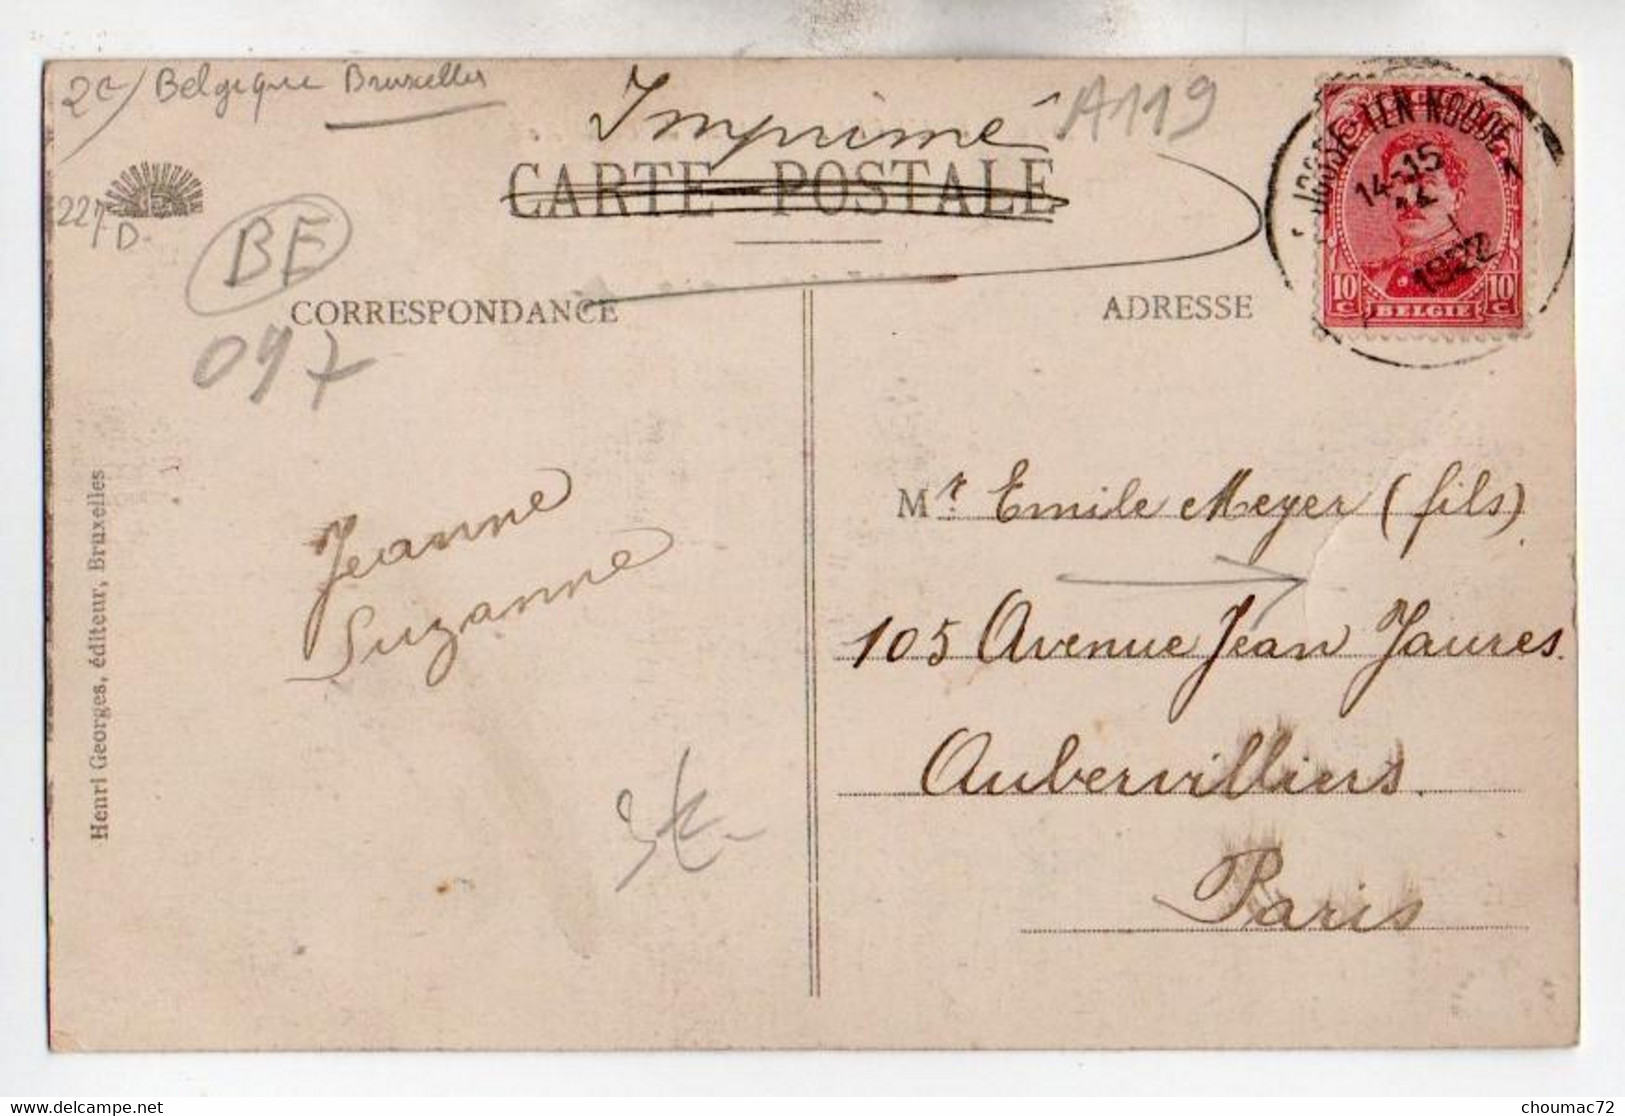 2e/ Belgique Bruxelles
Imprimé
A119
CARTE POSTALE
227
D.
BE
097
CORRESPONDANCE
ADRESSE
JOSSE-TEN-NOODE
14-15
1922
10 C
BELGIE
10 C
Henri Georges, éditeur, Bruxelles
Jeanne
Suzanne
Mr Emile Meyer (fils)
105 Avenue Jean Jaures.
Aubervilliers.
Paris
choumac72